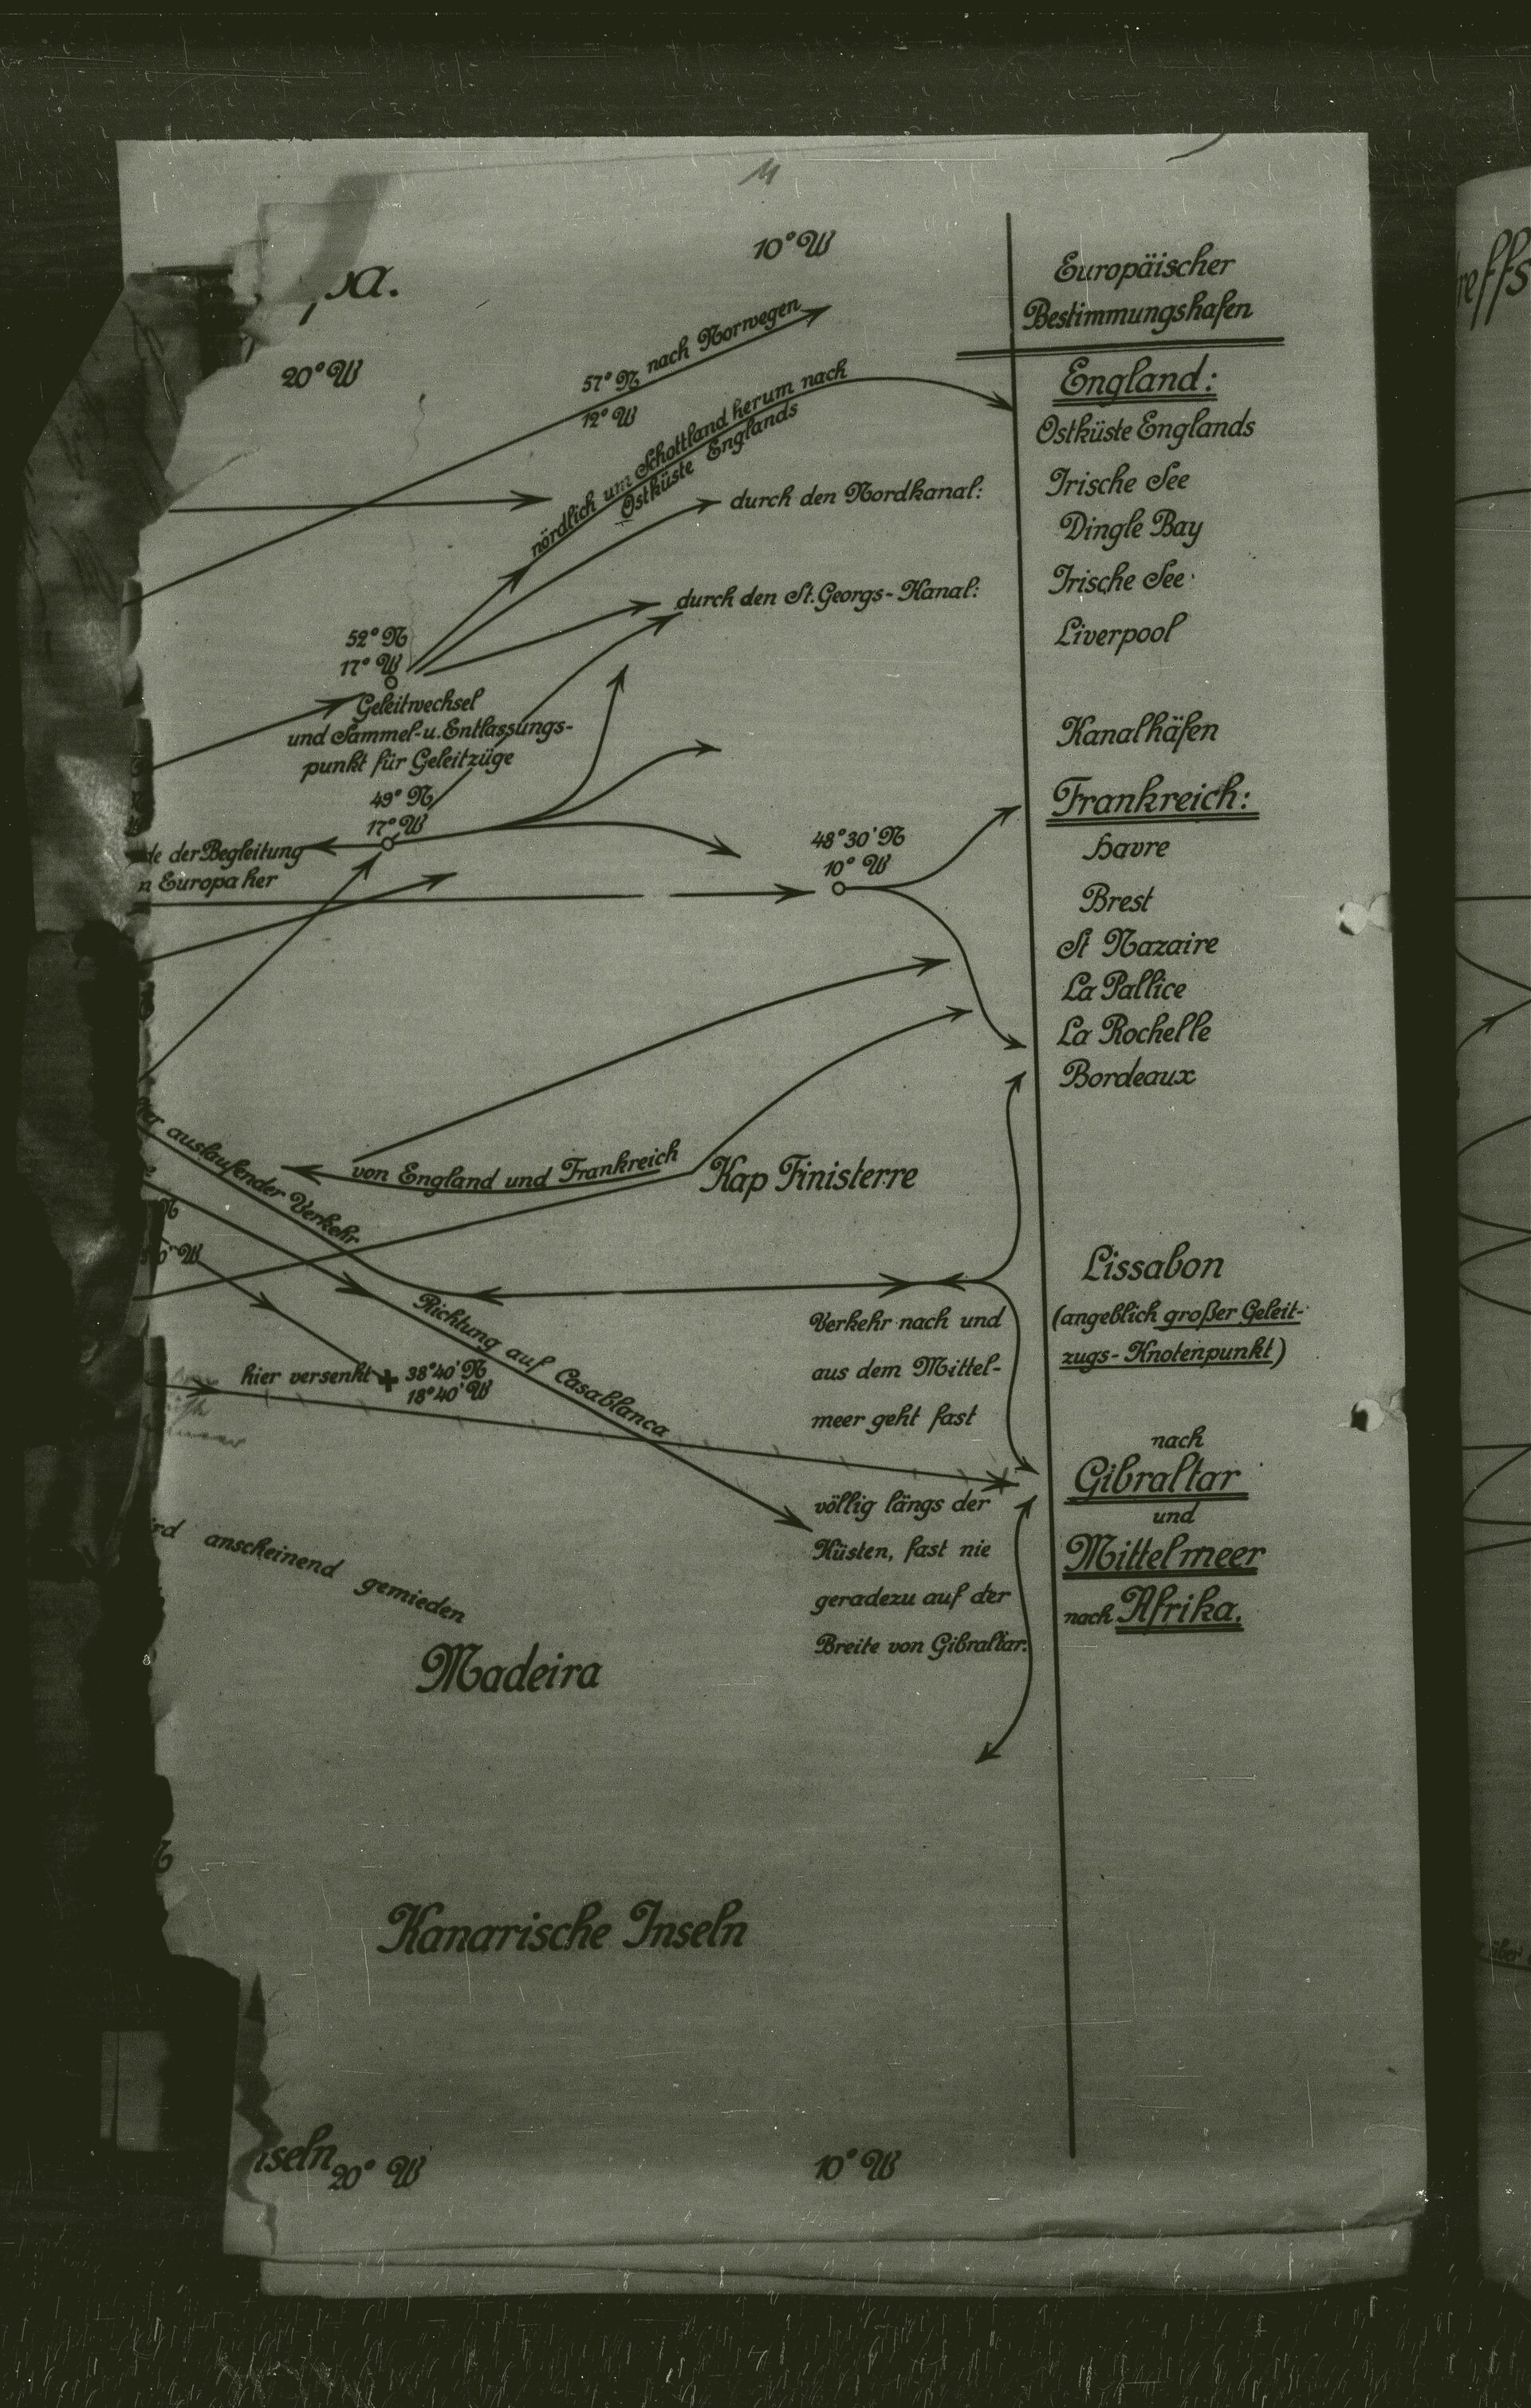 10° W
20° W
57° N nach Norwegen
12° W
nördlich um Schottland herum nach
Ostküste Englands
durch den Nordkanal:
durch den St. Georgs-Kanal:
52° N
17° W
Geleitwechsel
und Sammel- u. Entlassungs-
punkt für Geleitzüge
49° N
17° W
de der Begleitung
n Europa her
48° 30' N
10° W
auslaufender Verkehr
von England und Frankreich
Kap Finisterre
N
W
Richtung auf Casablanca
hier versenkt
38° 40' N
18° 40' W
Verkehr nach und
aus dem Mittel-
meer geht fast
völlig längs der
Küsten, fast nie
geradezu auf der
Breite von Gibraltar.
rd anscheinend gemieden
Madeira
Kanarische Inseln
nseln
20° W
10° W
Europäischer
Bestimmungshafen
England:
Ostküste Englands
Irische See
Dingle Bay
Irische See
Liverpool
Kanalhäfen
Frankreich:
Havre
Brest
St Nazaire
La Pallice
La Rochelle
Bordeaux
Lissabon
(angeblich großer Geleit-
zugs-Knotenpunkt)
nach
Gibraltar
und
Mittelmeer
nach Afrika.
reffs
über